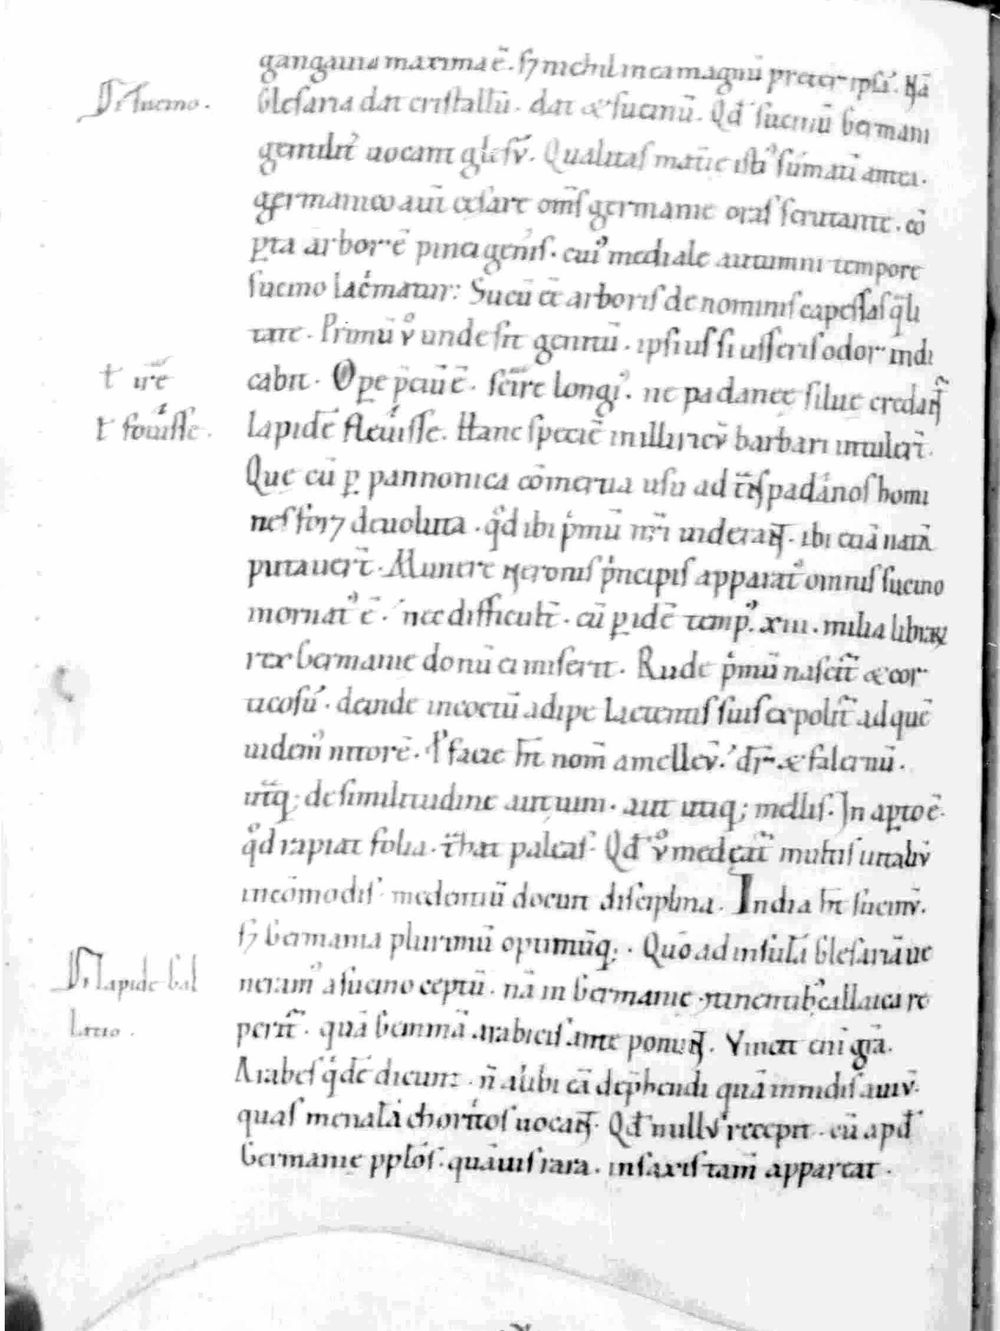 gangauia maxima ē. sꝫ nichil in ea magnū preter ipsā. Nā
De sucino. Glesaria dat cristallū. dat & sucinū. Qđ sucinū Germani
gentilit̄ uocant glesū. Qualitas mat̄ie isti᷒
germanico aūt cesare om̄s germanie oras scrutante. cō
ꝑta arbor ē pinei gen̄is. cui᷒ mediale autumni tempore
sucino lac̓matur: Sucū eē arboris de nominis capessas q̄li
tate. Primū v̊ unde sit genitū. ipsius si usseris odor indi
ł irē cabit. Ope p̄ciū ē. scire longi᷒. ne padanee silue credant̄
ł fouisse. lapidē fleuisse. Hanc speciē in illiricū barbari intuler̄t.
Que cū ꝑ pannonica cōmertia usu ad t̄ns padanos homi
nes for& deuoluta. qđ ibi p̓mū nr̄i uiderant̄. ibi etiā natā
putauer̄t. Munere Neronis p̓ncipis apparat᷒ omnis sucino
inornat᷒ ē. nec difficult̄. cū ꝑ idē temp᷒. xiii. milia librarꝝ
rex Germanie donū ei miserit. Rude p̓mū nascit̄ & cor
ticosū. deinde incoctū adipe lactentis suis expolit̄ ad quē
uidem᷒ nitorē. ꝓ facie h̄t nom̄ melleū. dr̄ & falernū.
utꝗ; de similitudine aut uini. aut utiq; mellis. In aꝑto ē.
qđ rapiat folia. t̄hat paleas. Qđ v̊ medeat̄ multis uitaliū
incōmodis. medentiū docuit disciplina. India h̄t sucinū.
sꝫ Germania plurimū optimūq;. Quō ad insulā Glesariā ue
De lapide Gal neram᷒ a sucino ceptū. nā in Germanie callaica re
latio. perit̄. quā Gemmā arabicis ante ponunt̄. Vincit eni᷒ grā.
Arabes q̓dē dicunt. n̄ alibi eā dep̄hendi quā in nidis auiū.
quas melancoriphos uocant̄. Qđ nullus recepit. cū apđ
Germanie pp̄los. quāuis rara. in saxis tam̄ appareat.